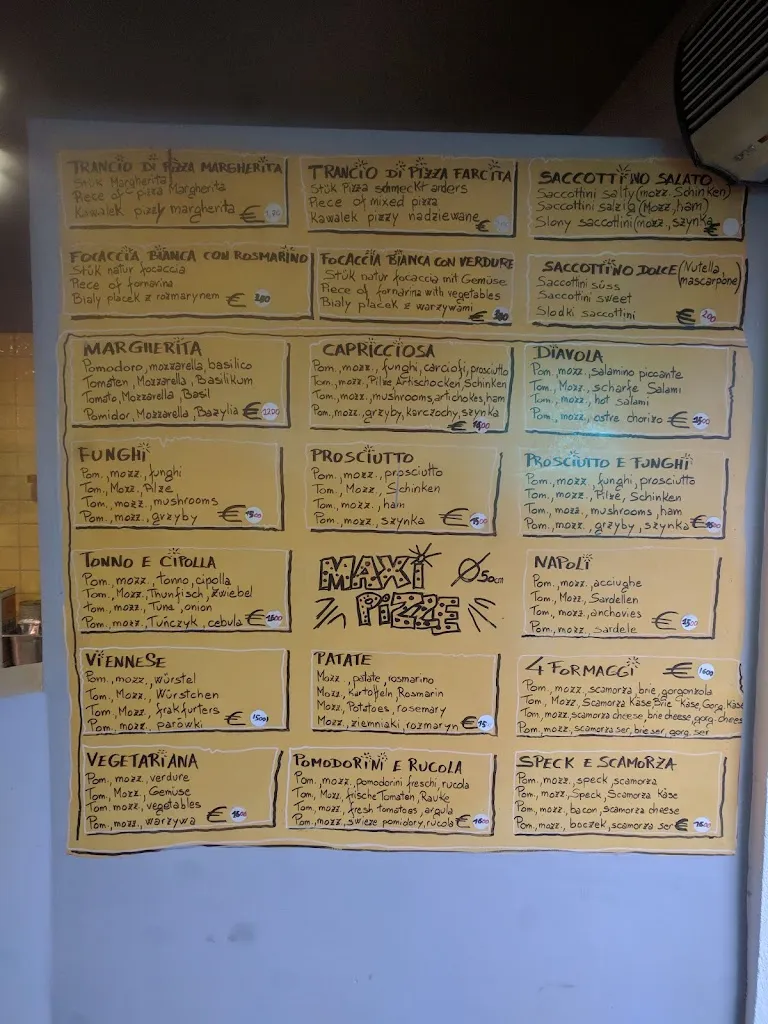 TRANCIO DI PIZZA MARGHERITA
Stük Margherita
Piece of pizza Margherita
Kawalek pizzy margherita €
TRANCIO DI PIZZA FARCITA
Stük Pizza schmeckt anders
Piece of mixed pizza
Kawalek pizzy nadziewane €
SACCOTTINO SALATO
Saccottini salty (mozz. Schinken)
Saccottini salzig (Mozz, ham)
Slony saccottini (mozz., szynka €
FOCACCIA BIANCA CON ROSMARINO
Stük natur focaccia
Piece of fornarina
Bialy placek z rozmarynem €
FOCACCIA BIANCA CON VERDURE
Stük natur focaccia mit Gemüse
Piece of fornarina with vegetables
Bialy placek z warzywami €
SACCOTTINO DOLCE (Nutella, mascarpone)
Saccottini süss
Saccottini sweet
Slodki saccottini € 200
MARGHERITA
Pomodoro, mozzarella, basilico
Tomaten, Mozzarella, Basilikum
Tomato, Mozzarella, Basil
Pomidor, Mozzarella, Bazylia €
CAPRICCIOSA
Pom., mozz., funghi, carciofi, prosciutto
Tom., mozz., Pilze, Artischocken, Schinken
Tom., mozz., mushrooms, artichokes, ham
Pom., mozz., grzyby, karczochy, szynka
€ 1600
DIAVOLA
Pom., mozz., salamino piccante
Tom., Mozz., scharfe Salami
Tom., mozz., hot salami
Pom., mozz., ostre chorizo € 1500
FUNGHI
Pom., mozz., funghi
Tom., Mozz., Pilze
Tom., mozz., mushrooms
Pom., mozz., grzyby € 1500
PROSCIUTTO
Pom., mozz., prosciutto
Tom., Mozz., Schinken
Tom., mozz., ham
Pom., mozz., szynka € 1500
PROSCIUTTO E FUNGHI
Pom., mozz., funghi, prosciutto
Tom., mozz., Pilze, Schinken
Tom., mozz., mushrooms, ham
Pom., mozz., grzyby, szynka €
TONNO E CIPOLLA
Pom., mozz., tonno, cipolla
Tom., Mozz., Thunfisch, Zwiebel
tom., mozz., Tuna, onion
Pom., mozz., Tuńczyk, cebula € 1600
MAXI Ø 50cm
PIZZE
NAPOLI
Pom., mozz., acciughe
Tom., Mozz., Sardellen
Tom., mozz., anchovies
Pom., mozz., sardele € 1500
VIENNESE
Pom., mozz., würstel
Tom., Mozz., Würstchen
Tom., Mozz., frakfurters
Pom., mozz., parówki € 1500
PATATE
Mozz., patate, rosmarino
Mozz., Kartoffeln, Rosmarin
Mozz., Potatoes, rosemary
Mozz., ziemniaki, rozmaryn € 15
4 FORMAGGI € 1600
Pom., mozz., scamorza, brie, gorgonzola
Tom., Mozz., Scamorza Käse, Brie Käse, Gorg. Käse
Tom., mozz., scamorza cheese, brie cheese, gorg. chees
Pom., mozz., scamorza ser, brie ser, gorg. ser
VEGETARIANA
Pom., mozz., verdure
Tom., Mozz., Gemüse
Tom. mozz., vegetables
Pom., mozz., warzywa € 1600
POMODORINI E RUCOLA
Pom., mozz., pomodorini freschi, rucola
Tom., Mozz., frische Tomaten, Rauke
Tom., mozz., fresh tomatoes, argula
Pom., mozz., swieze pomidory, rucola € 1600
SPECK E SCAMORZA
Pom., mozz., speck, scamorza
Tom., mozz., Speck, Scamorza Käse
Pom., mozz., bacon, scamorza cheese
Pom., mozz., boczek, scamorza ser € 1600